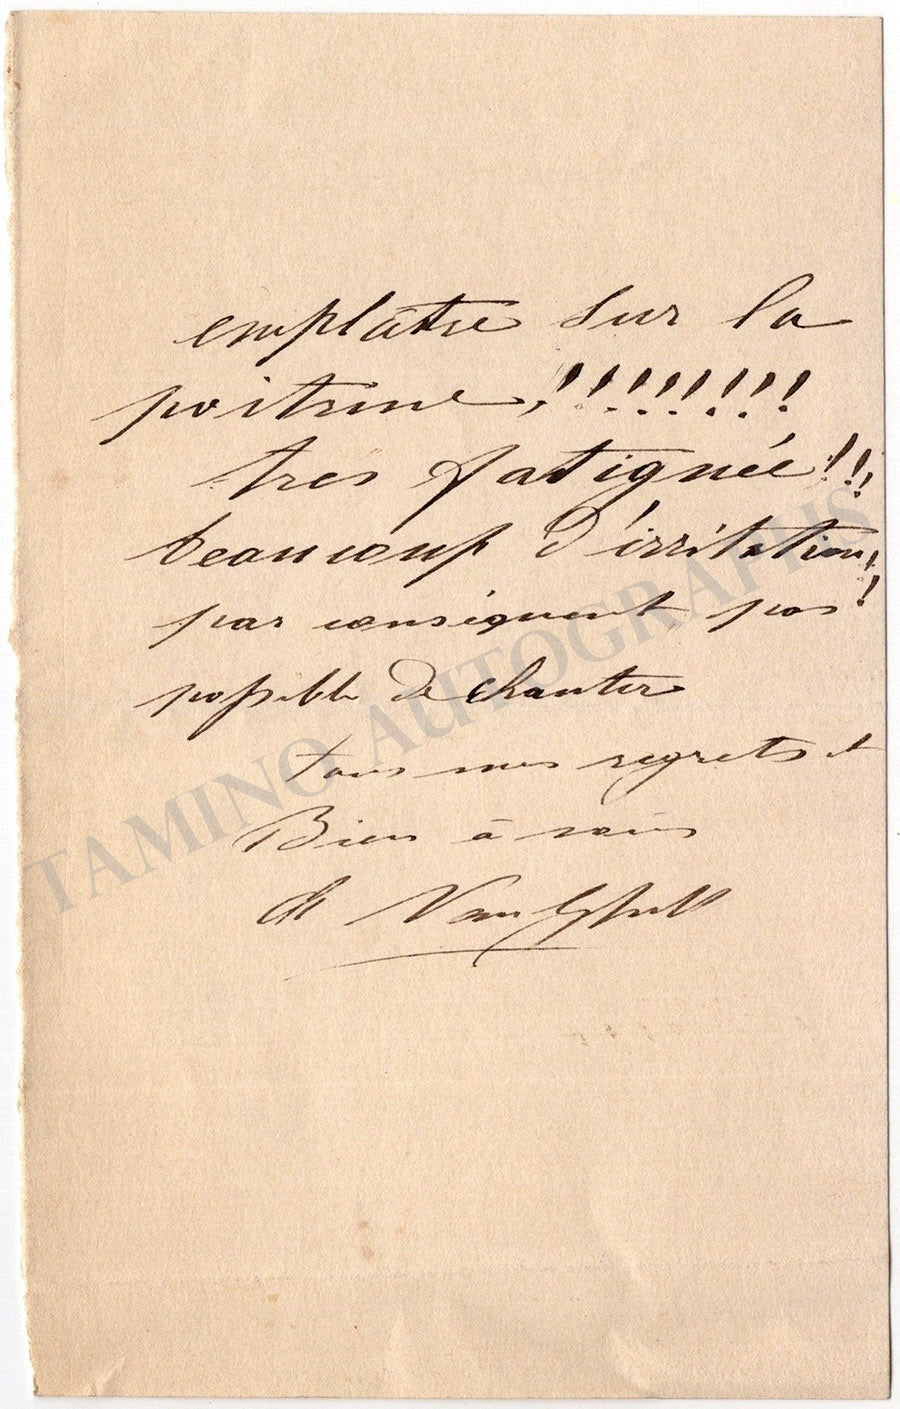 emplâtre sur la
poitrine, !!!!!!!!
très fatignée !!!
beaucoup d'irritation !
par conséquent pas !
possible de chanter
tous mes regrets et
Bien à vous
Van
TAMINO AUTOGRAPHS